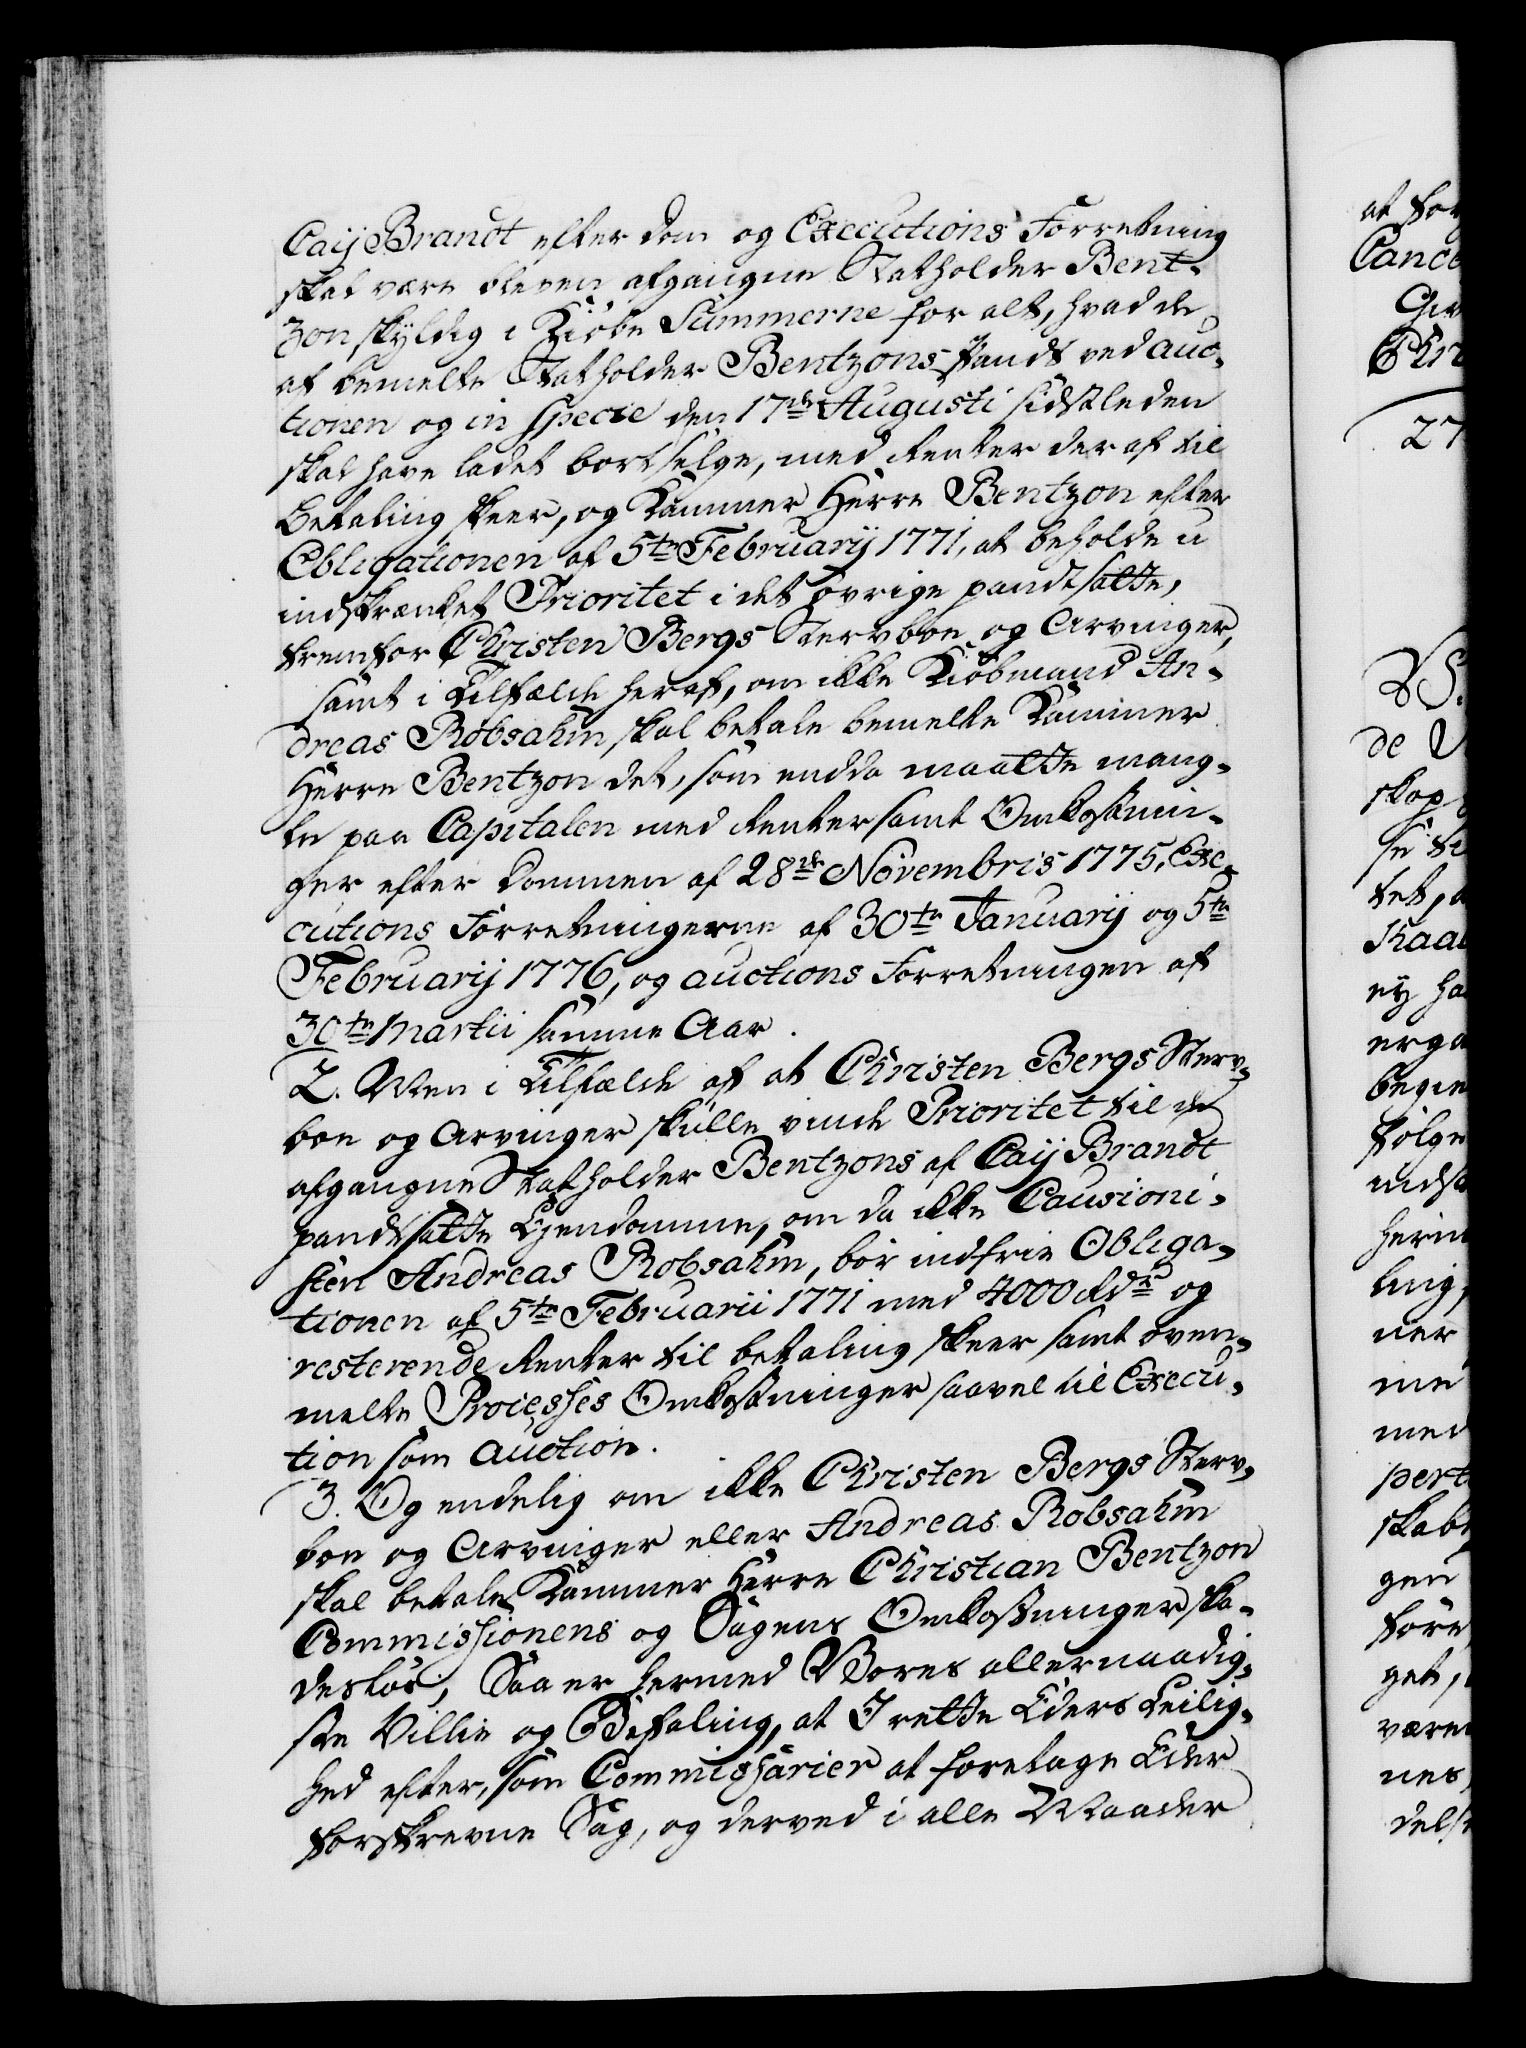 Caij Brandt efter dom og Executions Forretning
skal være bleven afgangne Statholder Bent-
zon skyldig i Kiöbe Summerne for alt, hvad de
af bemelte Statholder Bentzons Pandt ved auc-
tionen og in specie den 17de Augusti sidstleden
skal have ladet bortselge, med Renter deraf til
betaling skeer, og Kammer Herre Bentzon efter
Obligationen af 5te Februarij 1771, at beholde u
indskrænket Prioritet i det övrige pandtsatte,
fremfor Christen Bergs Stervboe og Arvinger,
samt i Tilfælde heraf, om ikke Kiöbmand An-
dreas Robsahm skal betale bemelte Kammer
Herre Bentzon det, som endda maatte mang-
le paa Capitalen med Renter samt Omkostnin-
ger efter Dommen af 28de Novembris 1775, Exe-
cutions Forretningerne af 30te Januarij og 5te
Februarij 1776, og auctions Forretningen af
30te Martii samme Aar.
2. Men i Tilfælde af at Christen Bergs Sterv-
boe og Arvinger skulle vinde Prioritet til de
afgangne Statholder Bentzons af Caij Brandt
pandtsatte Ejendomme, om da ikke Cautioni-
sten Andreas Robsahm, bör indfrie Obliga-
tionen af 5te Februarii 1771 med 4000 Rdr og
resterende Renter til betaling skeer samt oven-
melte Processes Omkostninger saavel til Execu-
tion som Auction.
3. Og endelig om ikke Christen Bergs Sterv-
boe og Arvinger eller Andreas Robsahm
skal betale Kammer Herre Christian Bentzon
Commissionens og Sagens Omkostninger ska-
deslös; Saa er hermed Vores allernaadig-
ste Villie og Befaling, at I rette Eders Leilig-
hed efter, som Commissarier at foretage Eder
forskrevne Sag, og derved i alle Maader
at for
Cance
Giv
Chr
27
de V
skap
se ti
tet, a
Raad
ej ha
erga
begie
fölge
indst
herin
ning,
ner
me
med
pert
skab
gen
före
get,
være
nes
dels